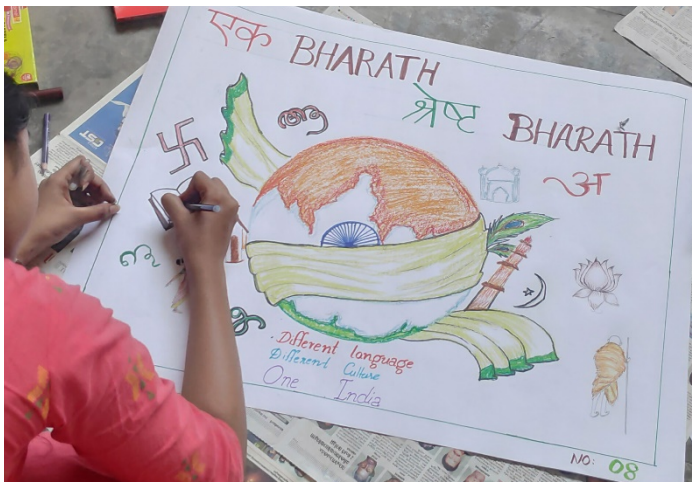 एक BHARATH
श्रेष्ट BHARATH
अ
Different language
Different Culture
One India
NO: 08